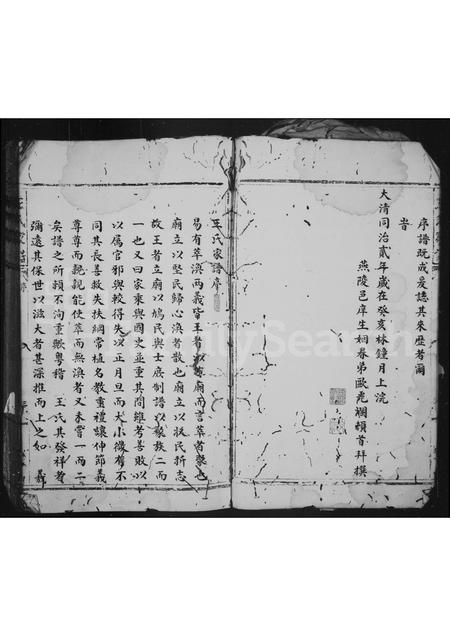 序譜既成爰誌其來歷者爾
旹
大清同治貳年歲在癸亥林鐘月上浣
燕陵邑庠生姻眷弟歐 頓首拜撰
王氏家譜序
易有萃渙兩義皆王者 廟而言萃者聚也
廟立以堅民歸心渙者散也廟立以收民折志
故王者立廟以鳩民與士底制譜以聚族二而
一也又曰家乘與國史並重其間維考善敗以
以屬官邪與較得失以正月旦而大小微 不
同其長善救失扶綱常植名教重禮讓仲節義
尊尊而親親能使萃而無渙者又未嘗一而二
矣譜之所賴不洵重歟粵稽 王氏其發祥者
彌遠其保世以滋大者甚深推而上之如 義
FamilySearch